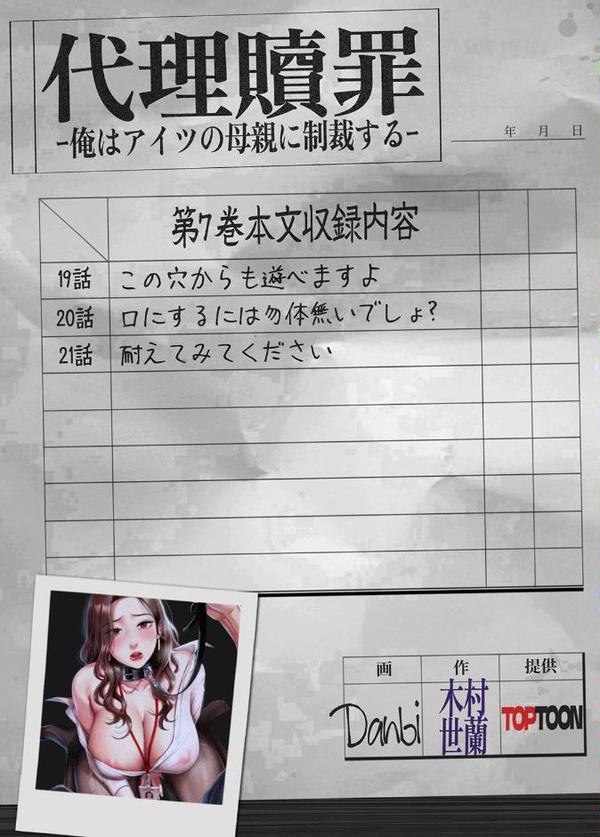 代理贖罪
-俺はアイツの母親に制裁する-
年 月 日
第7巻本文収録内容
19話 この穴からも遊べますよ
20話 口にするには勿体無いでしょ?
21話 耐えてみてください
画 作 提供
Danbi 木村世蘭 TOPTOON